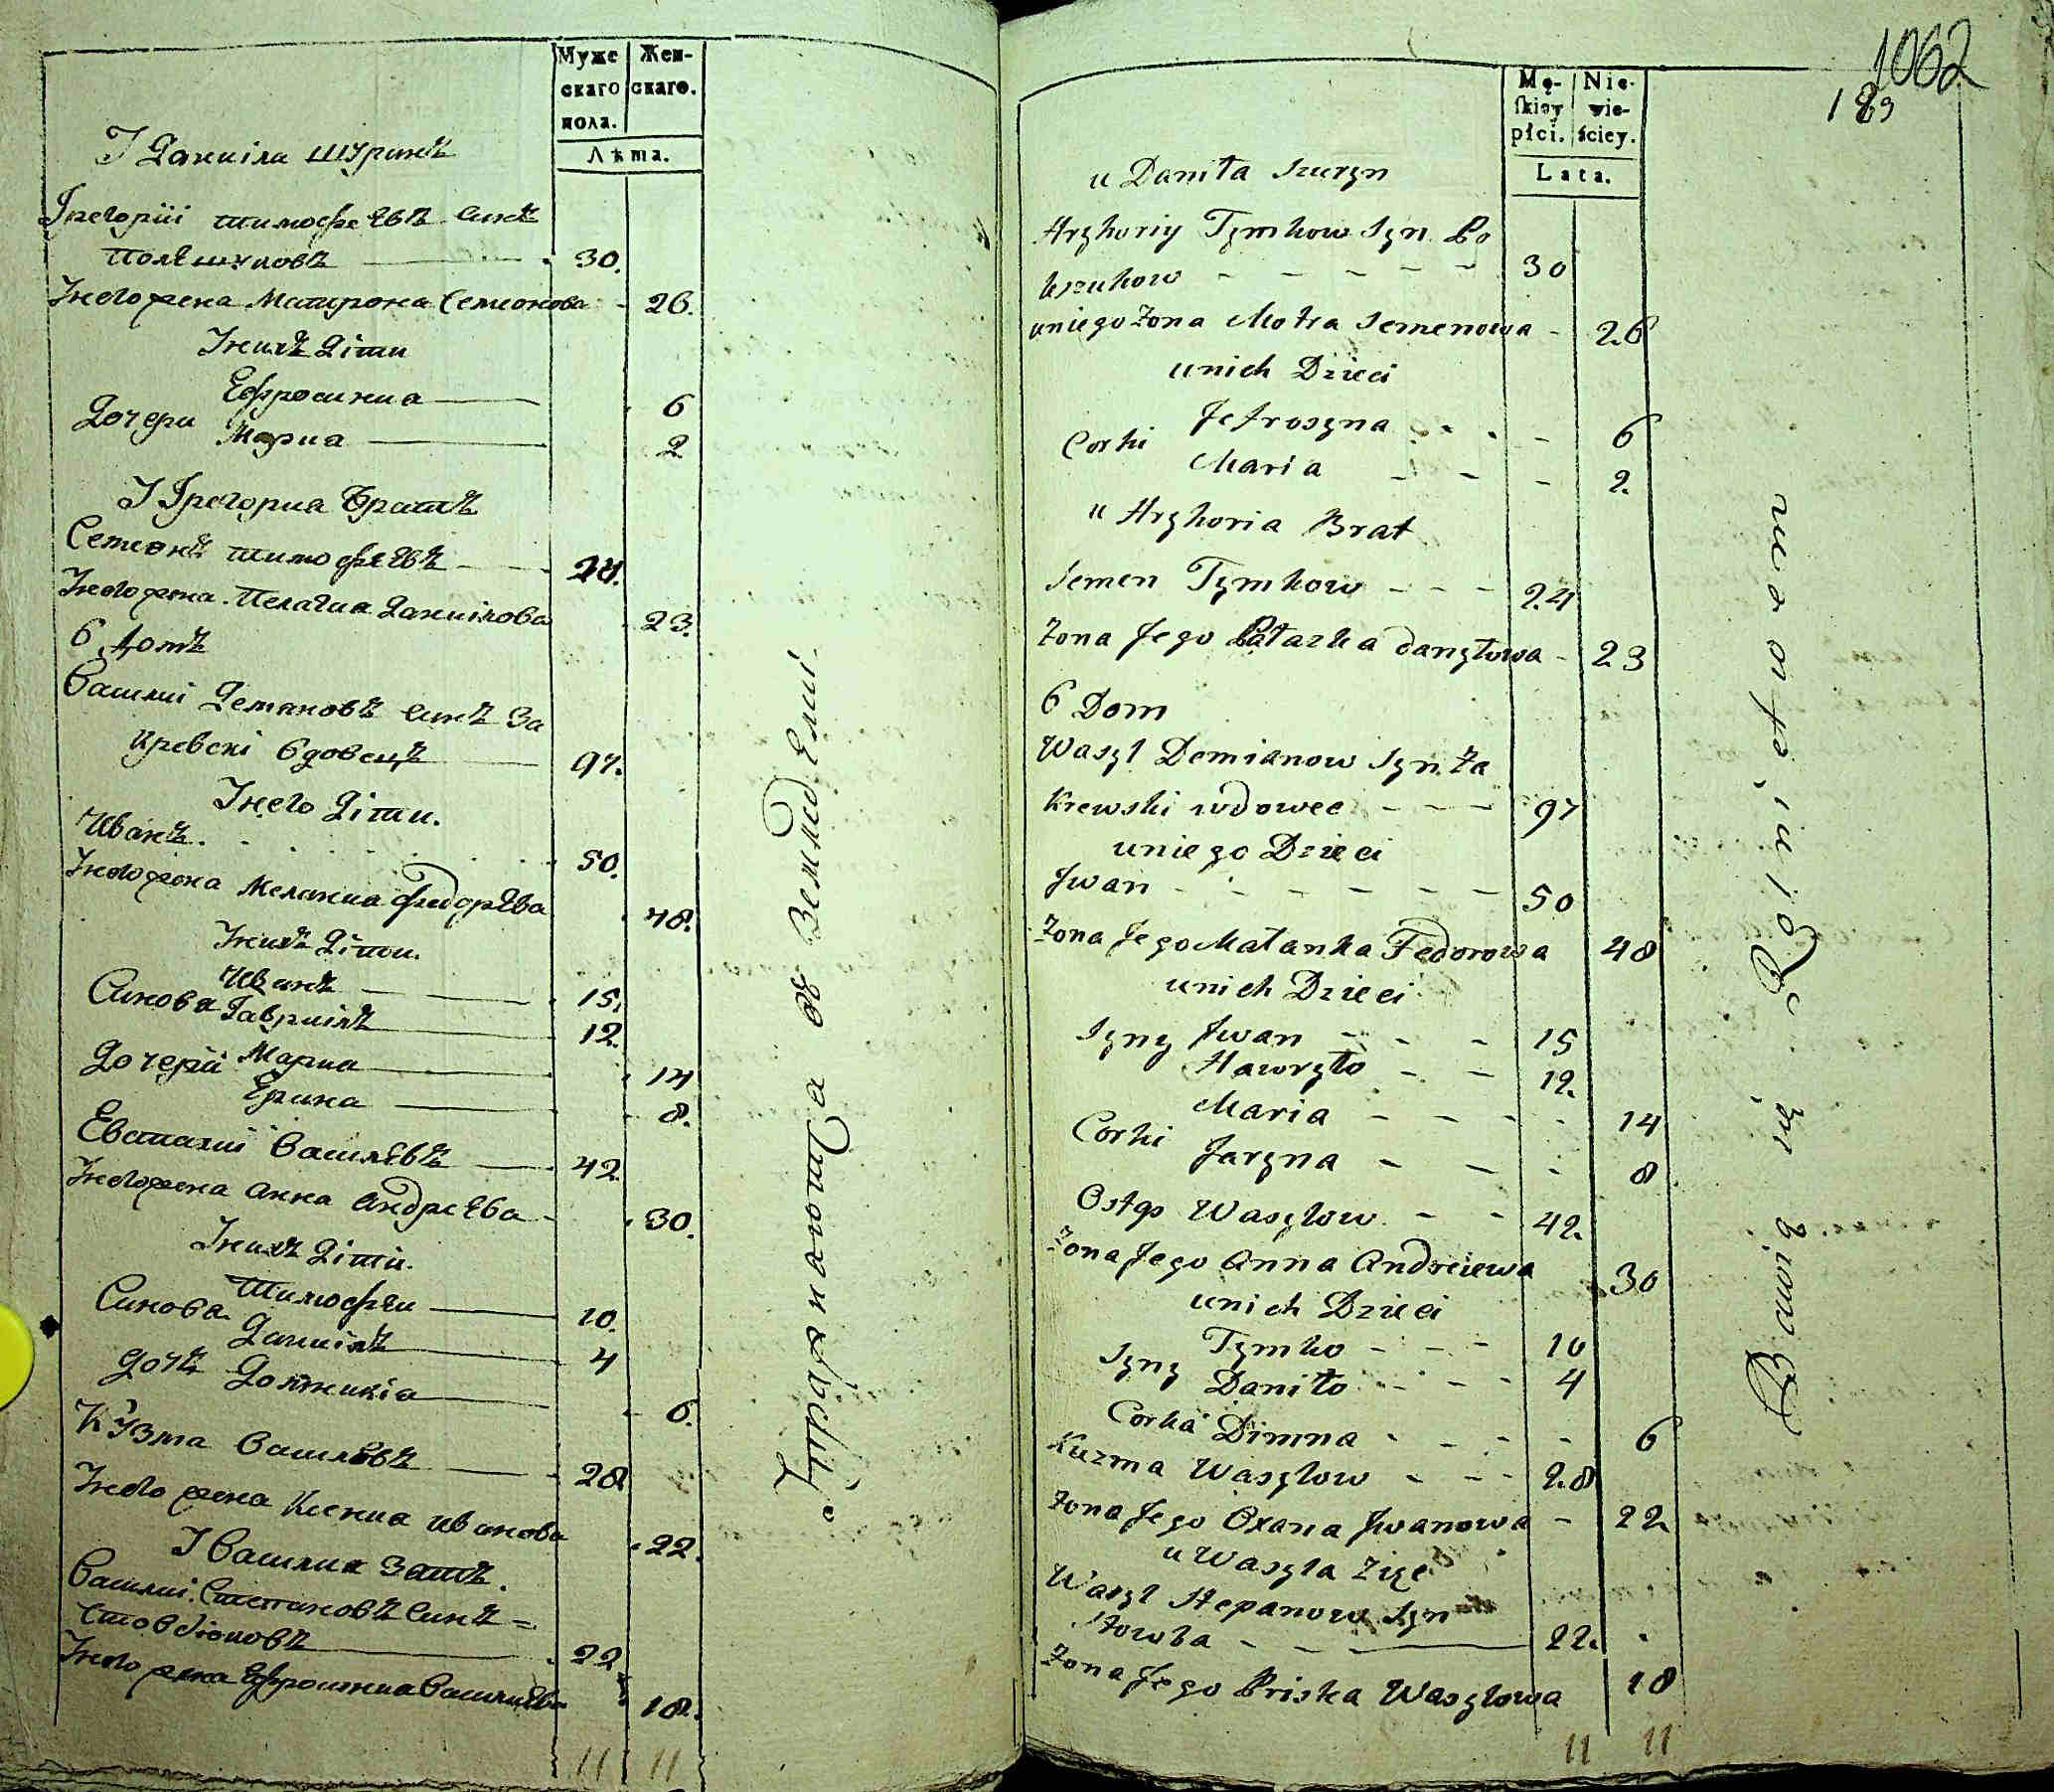 Муже
скаго
пола.
Жен-
скаго.
Лѣта.
У Данила Шуринъ
Григориі Тимофеѣвъ синъ
Полѣшуковъ 30.
У него жена Матрона Семионова 26.
У нихъ дѣти
Ефросиниа 6
Дочери
Мариа 2
У Григориа братъ
Семионъ Тимофеѣвъ 24.
У него жена Пелагиа Данилова 23.
6 домъ
Василиі Демяновъ синъ За
кревскі вдовецъ 97.
У него дѣти.
Иванъ 50.
У него жена Меланиа Федорѣва 48.
У нихъ дѣти.
Иванъ 15.
Синова
Гавриілъ 12.
Дочери Мариа 14
Ерина 8.
Евстахиі Василѣвъ 42
У него жена Анна Андреѣва 30.
У нихъ дѣти.
Тимофѣи 10.
Синова
Даниілъ 4
дочъ Домникіа 6.
Кузма Василѣвъ 28
У него жена Ксениа Иванова 22.
У Василиа зать.
Василиі Степановъ синъ =
Стовбюковъ 22
У него жена Ефросиниа Василиѣва 18.
11 11
Упражнаютца въ Землид Елиі
1062
189
Mę-
skiey
płci.
Nie-
wie-
ściey.
Lata.
u Daniła Szuryn
Hryhoriy Tymkow Syn Po
leszukow 30
u niego Żona Motra Semenowa 26
u nich Dzieci
Jefroszyna 6
Corki
Maria 2.
u Hryhoria Brat
Semen Tymkow 24
Żona Jego Pałazka Danyłowa 23
6 Dom
Wasyl Demianow Syn Za
Krewski wdowec 97
u niego Dzieci
Jwan 50
Żona Jego Małanka Fedorowa 48
u nich Dzieci
Syny Jwan 15
Hawryło 12.
Maria 14
Corki
Jaryna 8
Ostap Wasylow 42.
Żona Jego Anna Andreiewa 30
u nich Dzieci
Tymko 10
Syny
Daniło 4
Corka Dimna 6
Kuzma Wasylow 28
Żona Jego Oxana Jwanowa 22
u Wasyla Zięć
Wasyl Stepanow Syn
Stowba 22.
Żona Jego Priska Wasylowa 18
11 11
Bawią się Rolnictwem